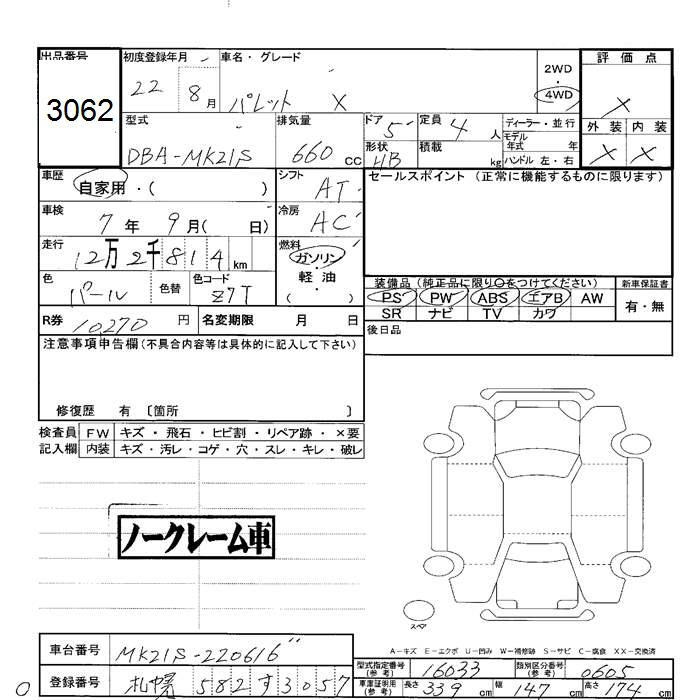 出品番号
3062
初度登録年月
22 8月
車名・グレード
パレット X
2WD
4WD
評価点
X
外装 内装
X X
型式
DBA-MK21S
排気量
660 cc
ドア 5
形状 HB
定員 4 人
積載 kg
ディーラー・並行
モデル年式 年
ハンドル 左・右
車歴
自家用・( )
シフト
AT
セールスポイント (正常に機能するものに限ります)
車検
7年 9月( 日)
冷房
AC
走行
12万2千814km
燃料
ガソリン・軽油
( ・ )
色
パール
色替
色コード
Z7T
装備品 (純正品に限り○をつけてください)
PS PW ABS エアB AW
SR ナビ TV カワ
新車保証書
有・無
R券 10270 円
名変期限 月 日
後日品
注意事項申告欄(不具合内容等は具体的に記入して下さい)
修復歴 有 〔箇所 〕
検査員記入欄
FW キズ・飛石・ヒビ割・リペア跡・×要
内装 キズ・汚レ・コゲ・穴・スレ・キレ・破レ
ノークレーム車
スペア
A-キズ E-エクボ U-凹み W-補修跡 S-サビ C-腐食 XX-交換済
車台番号 MK21S-220616
登録番号 札幌 582 す 3057
型式指定番号(参考) 16033
類別区分番号(参考) 0605
車庫証明用(参考) 長さ 339 cm 幅 147 cm 高さ 174 cm